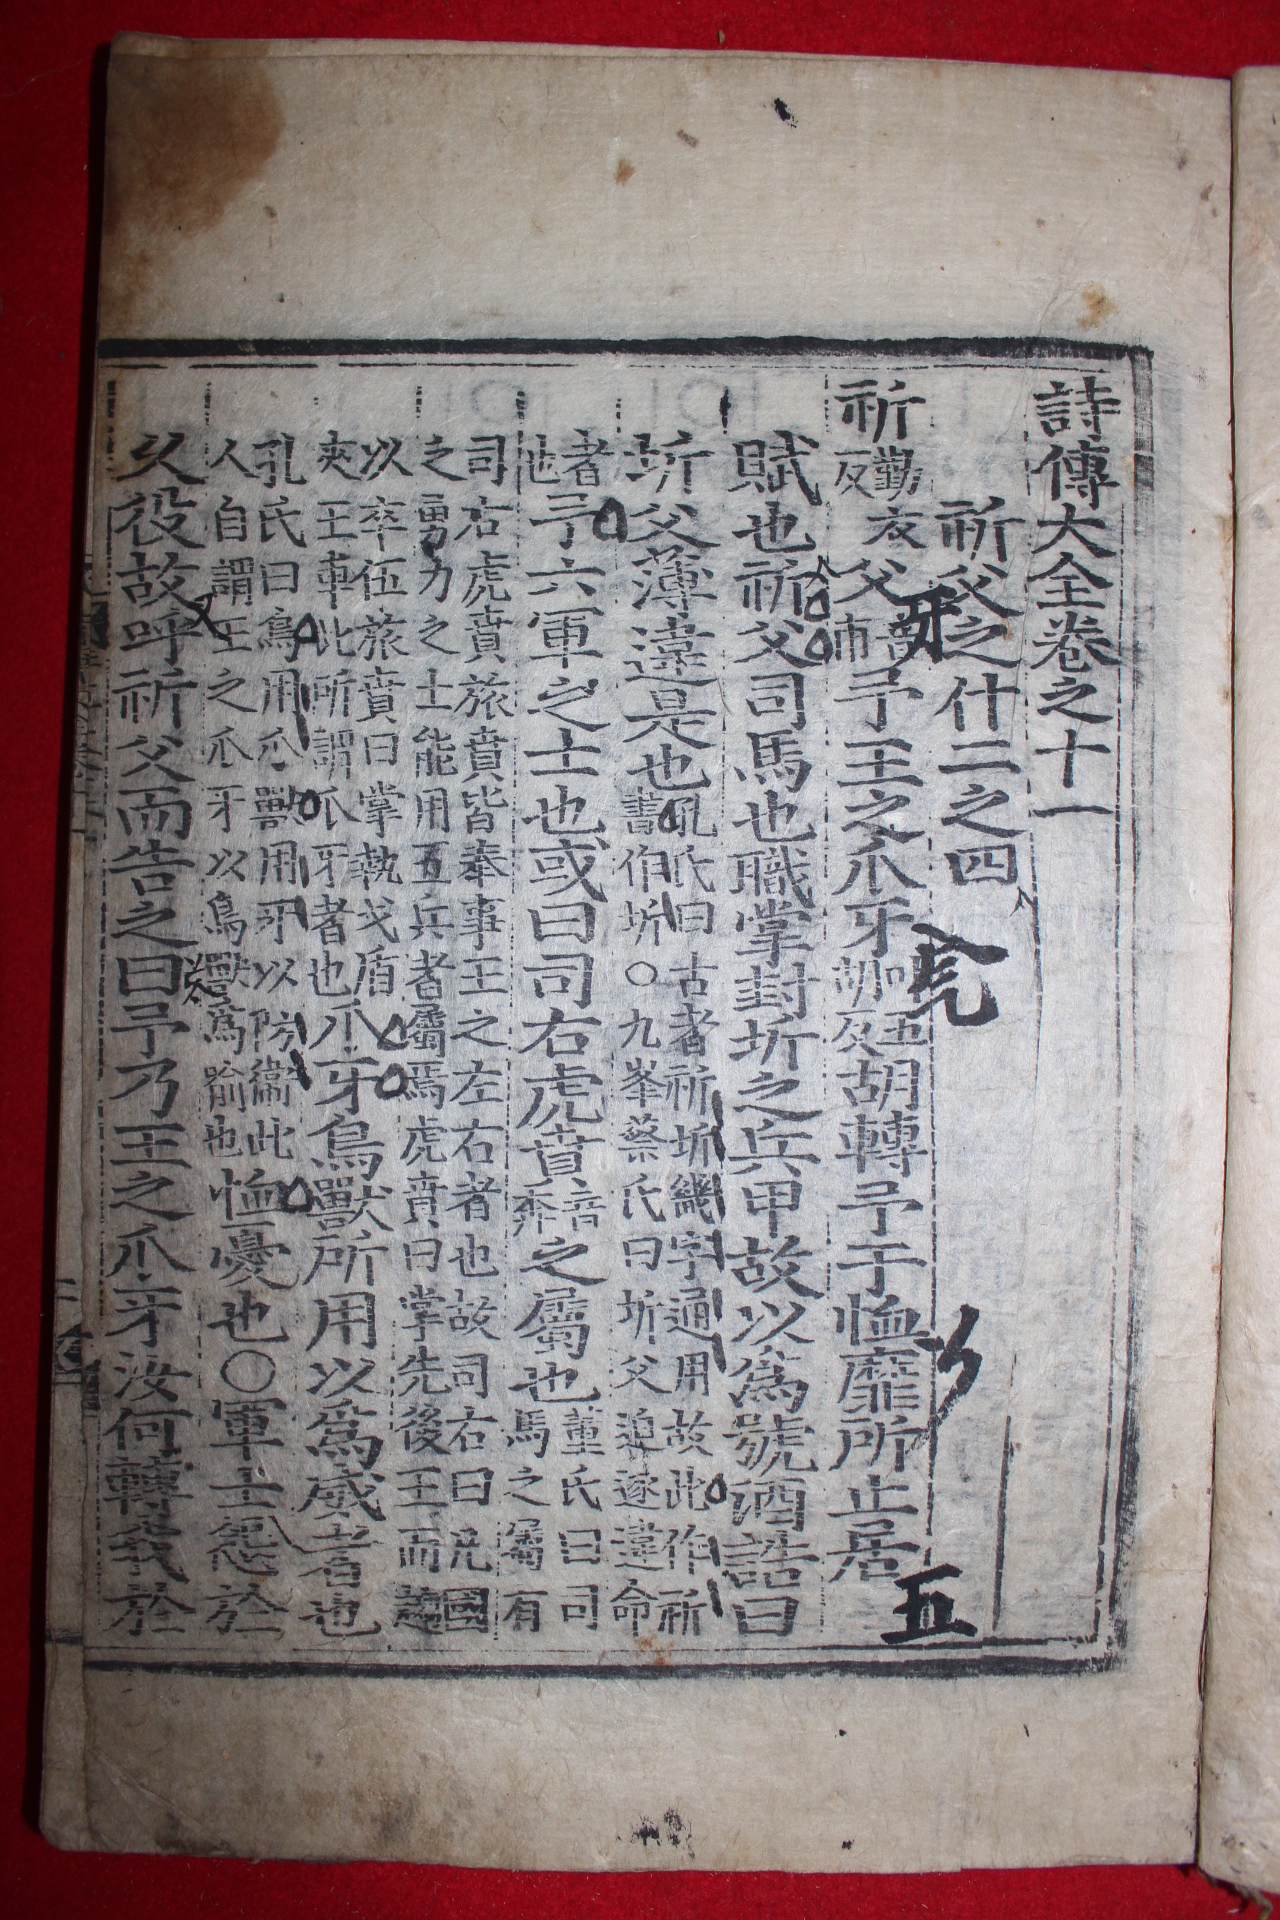 詩傳大全卷之十一
祈父之什二之四
祈勤衣反父音甫予王之爪牙叶五胡反胡轉予于恤靡所止居
賦也祈父司馬也職掌封圻之兵甲故以爲號酒誥曰
圻父薄違是也孔氏曰古者祈圻畿字通用故此作祈
書作圻○九峯蔡氏曰圻父迫逐違命
者也予六軍之士也或曰司右虎賁音奔之屬也董氏曰司
馬之屬有
司右虎賁旅賁皆奉事王之左右者也故司右曰凡國
之勇力之士能用五兵者屬焉虎賁曰掌先後王而趨
以卒伍旅賁曰掌執戈盾
夾王車此所謂爪牙者也爪牙鳥獸所用以爲威者也
孔氏曰鳥用爪獸用牙以防衛此
人自謂王之爪牙以鳥獸爲喻也恤憂也○軍士怨於
久役故呼祈父而告之曰予乃王之爪牙汝何轉我於
五